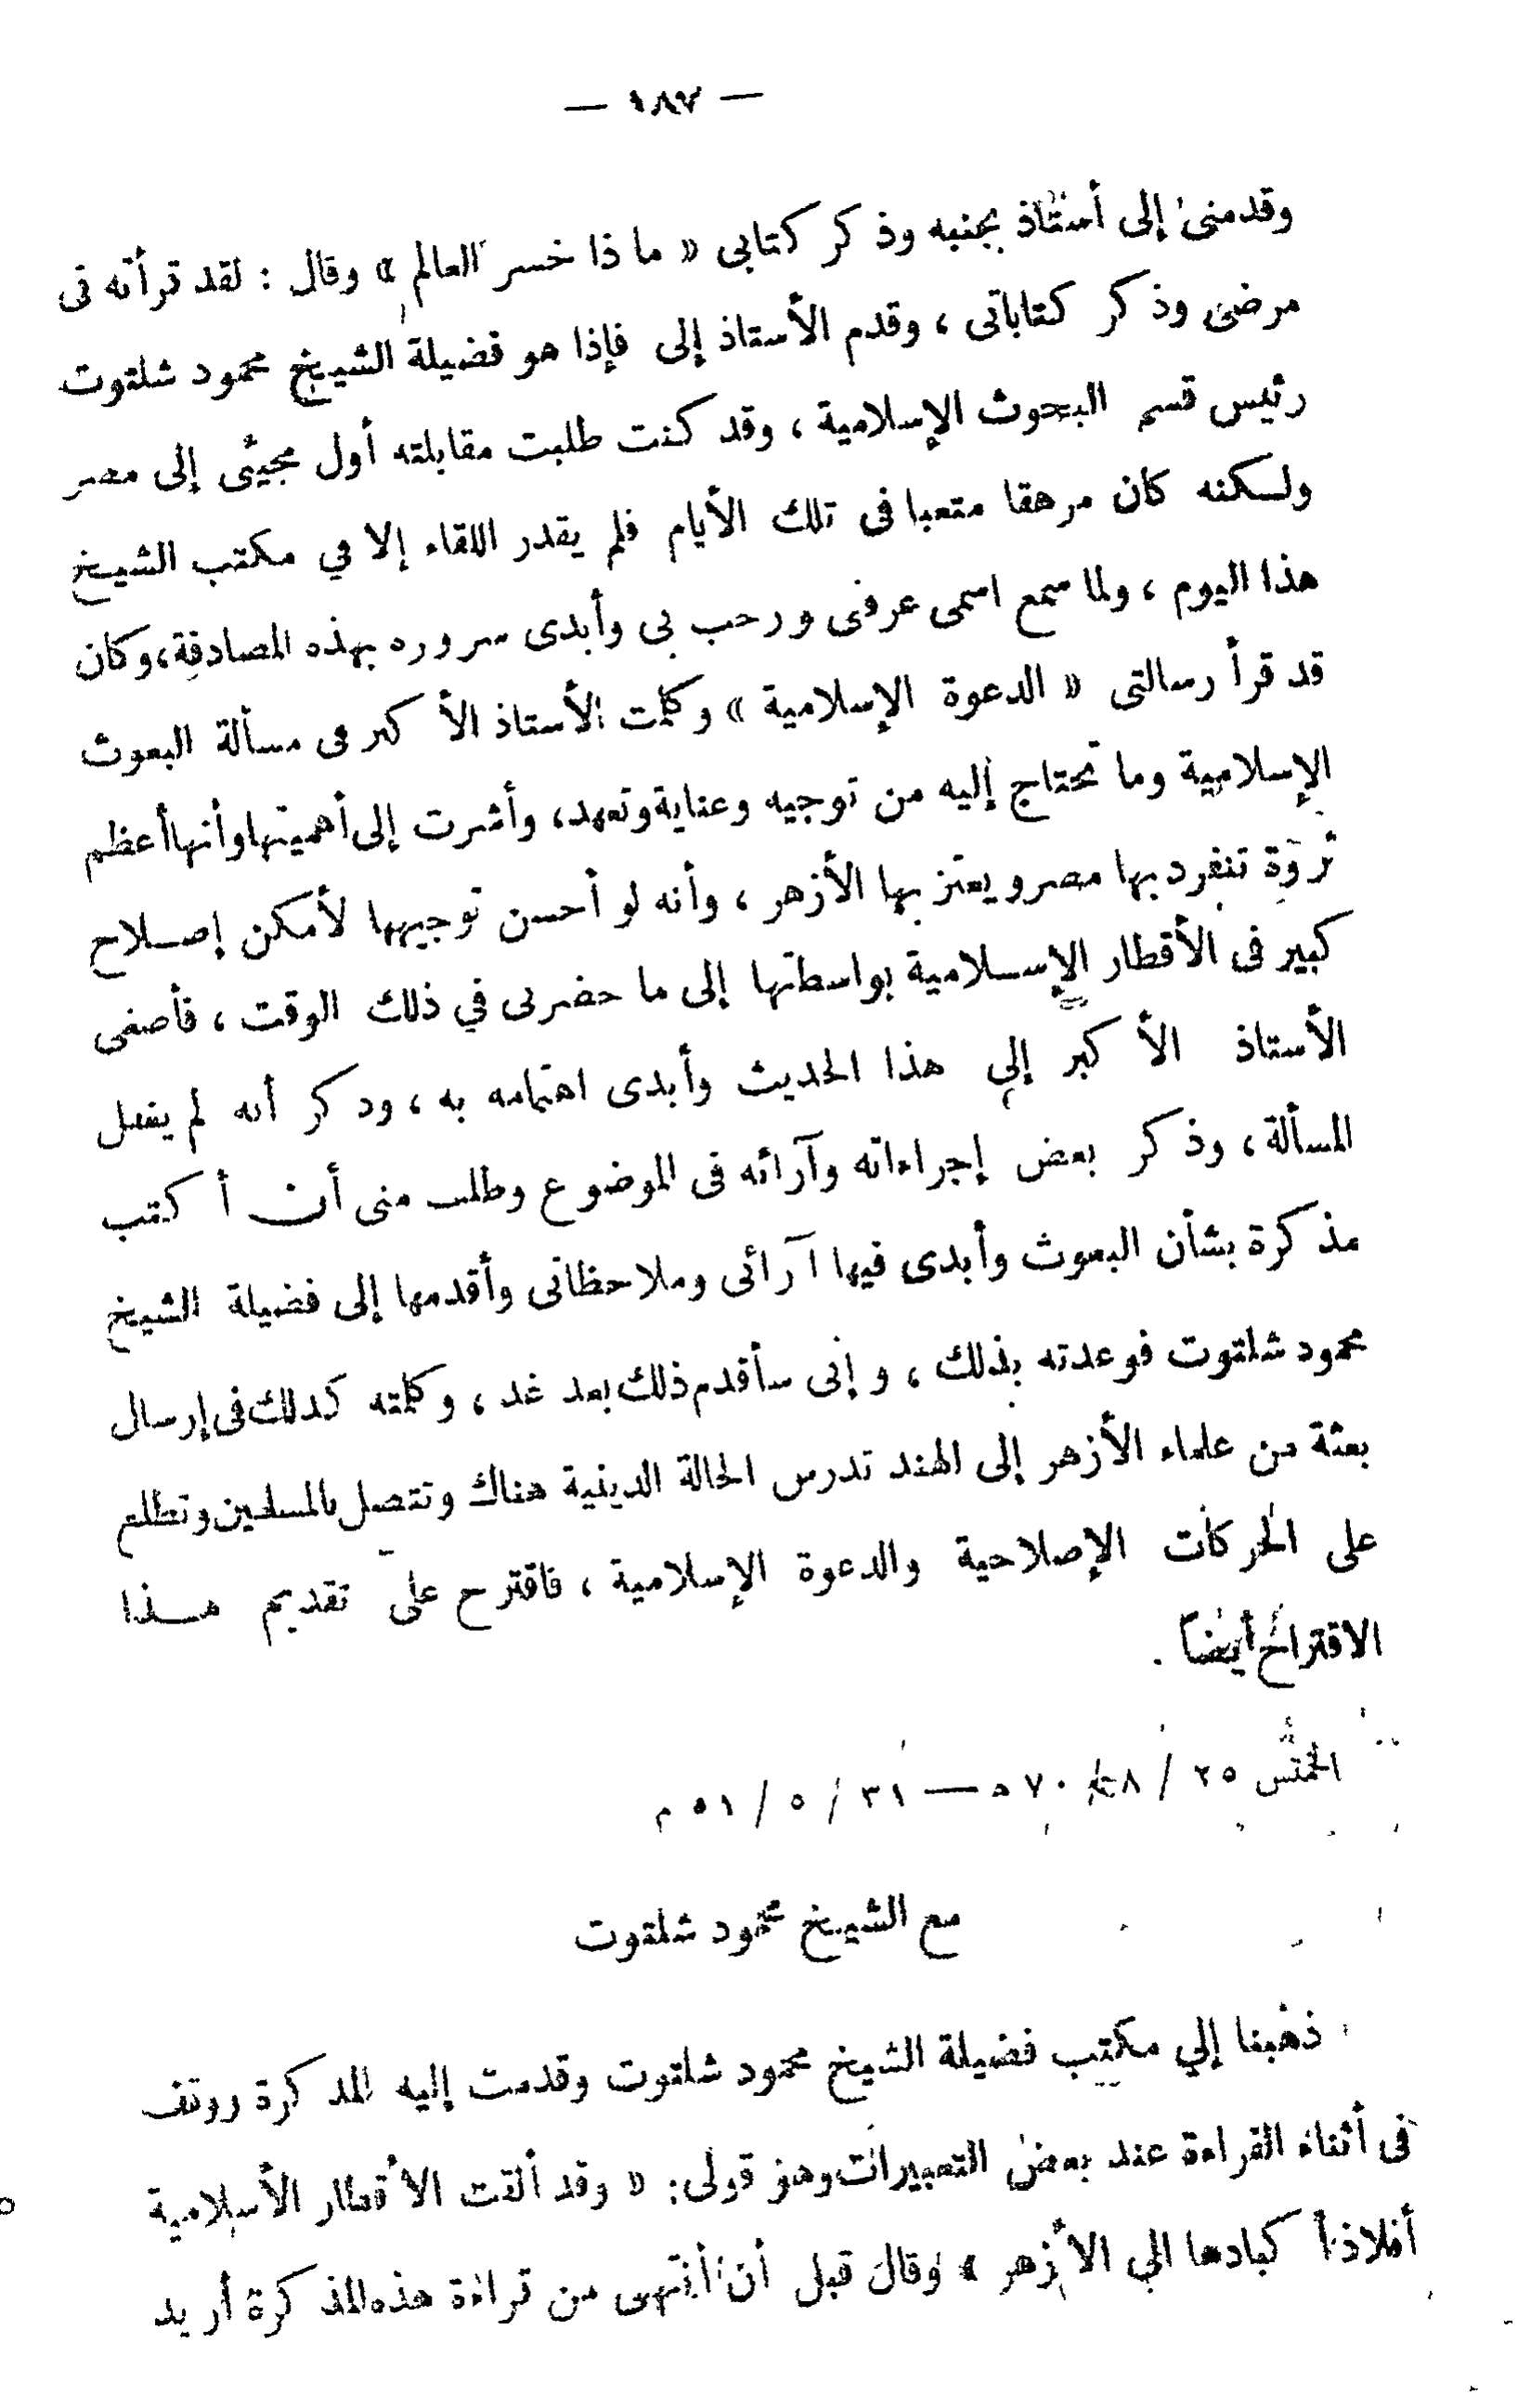 — ١٨٧ —
وقدمنى إلى أستاذ بجنبه وذكر كتابى « ماذا خسر العالم » وقال : لقد قرأته فى
مرضى وذكر كتاباتى ، وقدم الأستاذ إلى فإذا هو فضيلة الشيخ محمود شلتوت
رئيس قسم البحوث الإسلامية ، وقد كنت طلبت مقابلته أول مجيئى إلى مصر
ولكنه كان مرهقا متعبا فى تلك الأيام فلم يقدر اللقاء إلا في مكتب الشيخ
هذا اليوم ، ولما سمع اسمى عرفنى ورحب بى وأبدى سروره بهذه المصادفة، وكان
قد قرأ رسالتى « الدعوة الإسلامية » وكلمت الأستاذ الأكبر فى مسألة البعوث
الإسلامية وما تحتاج إليه من توجيه وعناية وتعهد، وأشرت إلى أهميتها وأنها أعظم
ثروة تنفرد بها مصر ويعتز بها الأزهر ، وأنه لو أحسن توجيهها لأمكن إصلاح
كبير فى الأقطار الإسلامية بواسطتها إلى ما حضرنى في ذلك الوقت ، فأصغى
الأستاذ الأكبر إلي هذا الحديث وأبدى اهتمامه به ، وذكر أنه لم يغفل
المسألة ، وذكر بعض إجراءاته وآرائه فى الموضوع وطلب منى أن أكتب
مذكرة بشأن البعوث وأبدى فيها آرائى وملاحظاتى وأقدمها إلى فضيلة الشيخ
محمود شلتوت فوعدته بذلك ، وإنى سأقدم ذلك بعد غد ، وكلمته كذلك فى إرسال
بعثة من علماء الأزهر إلى الهند تدرس الحالة الدينية هناك وتتصل بالمسلمين وتطلع
على الحركات الإصلاحية والدعوة الإسلامية ، فاقترح على تقديم هذا
الاقتراح أيضاً .
الخميس ٢٥ / ٨ / ٧٠ ه — ٣١ / ٥ / ٥١ م
مع الشيخ محمود شلتوت
ذهبنا إلي مكتب فضيلة الشيخ محمود شلتوت وقدمت إليه المذكرة ووقف
فى أثناء القراءة عند بعض التعبيرات وهو قولى: « وقد ألقت الأقطار الأسلامية
أفلاذ أكبادها الي الأزهر » وقال قبل أن أنتهى من قراءة هذه المذكرة أريد